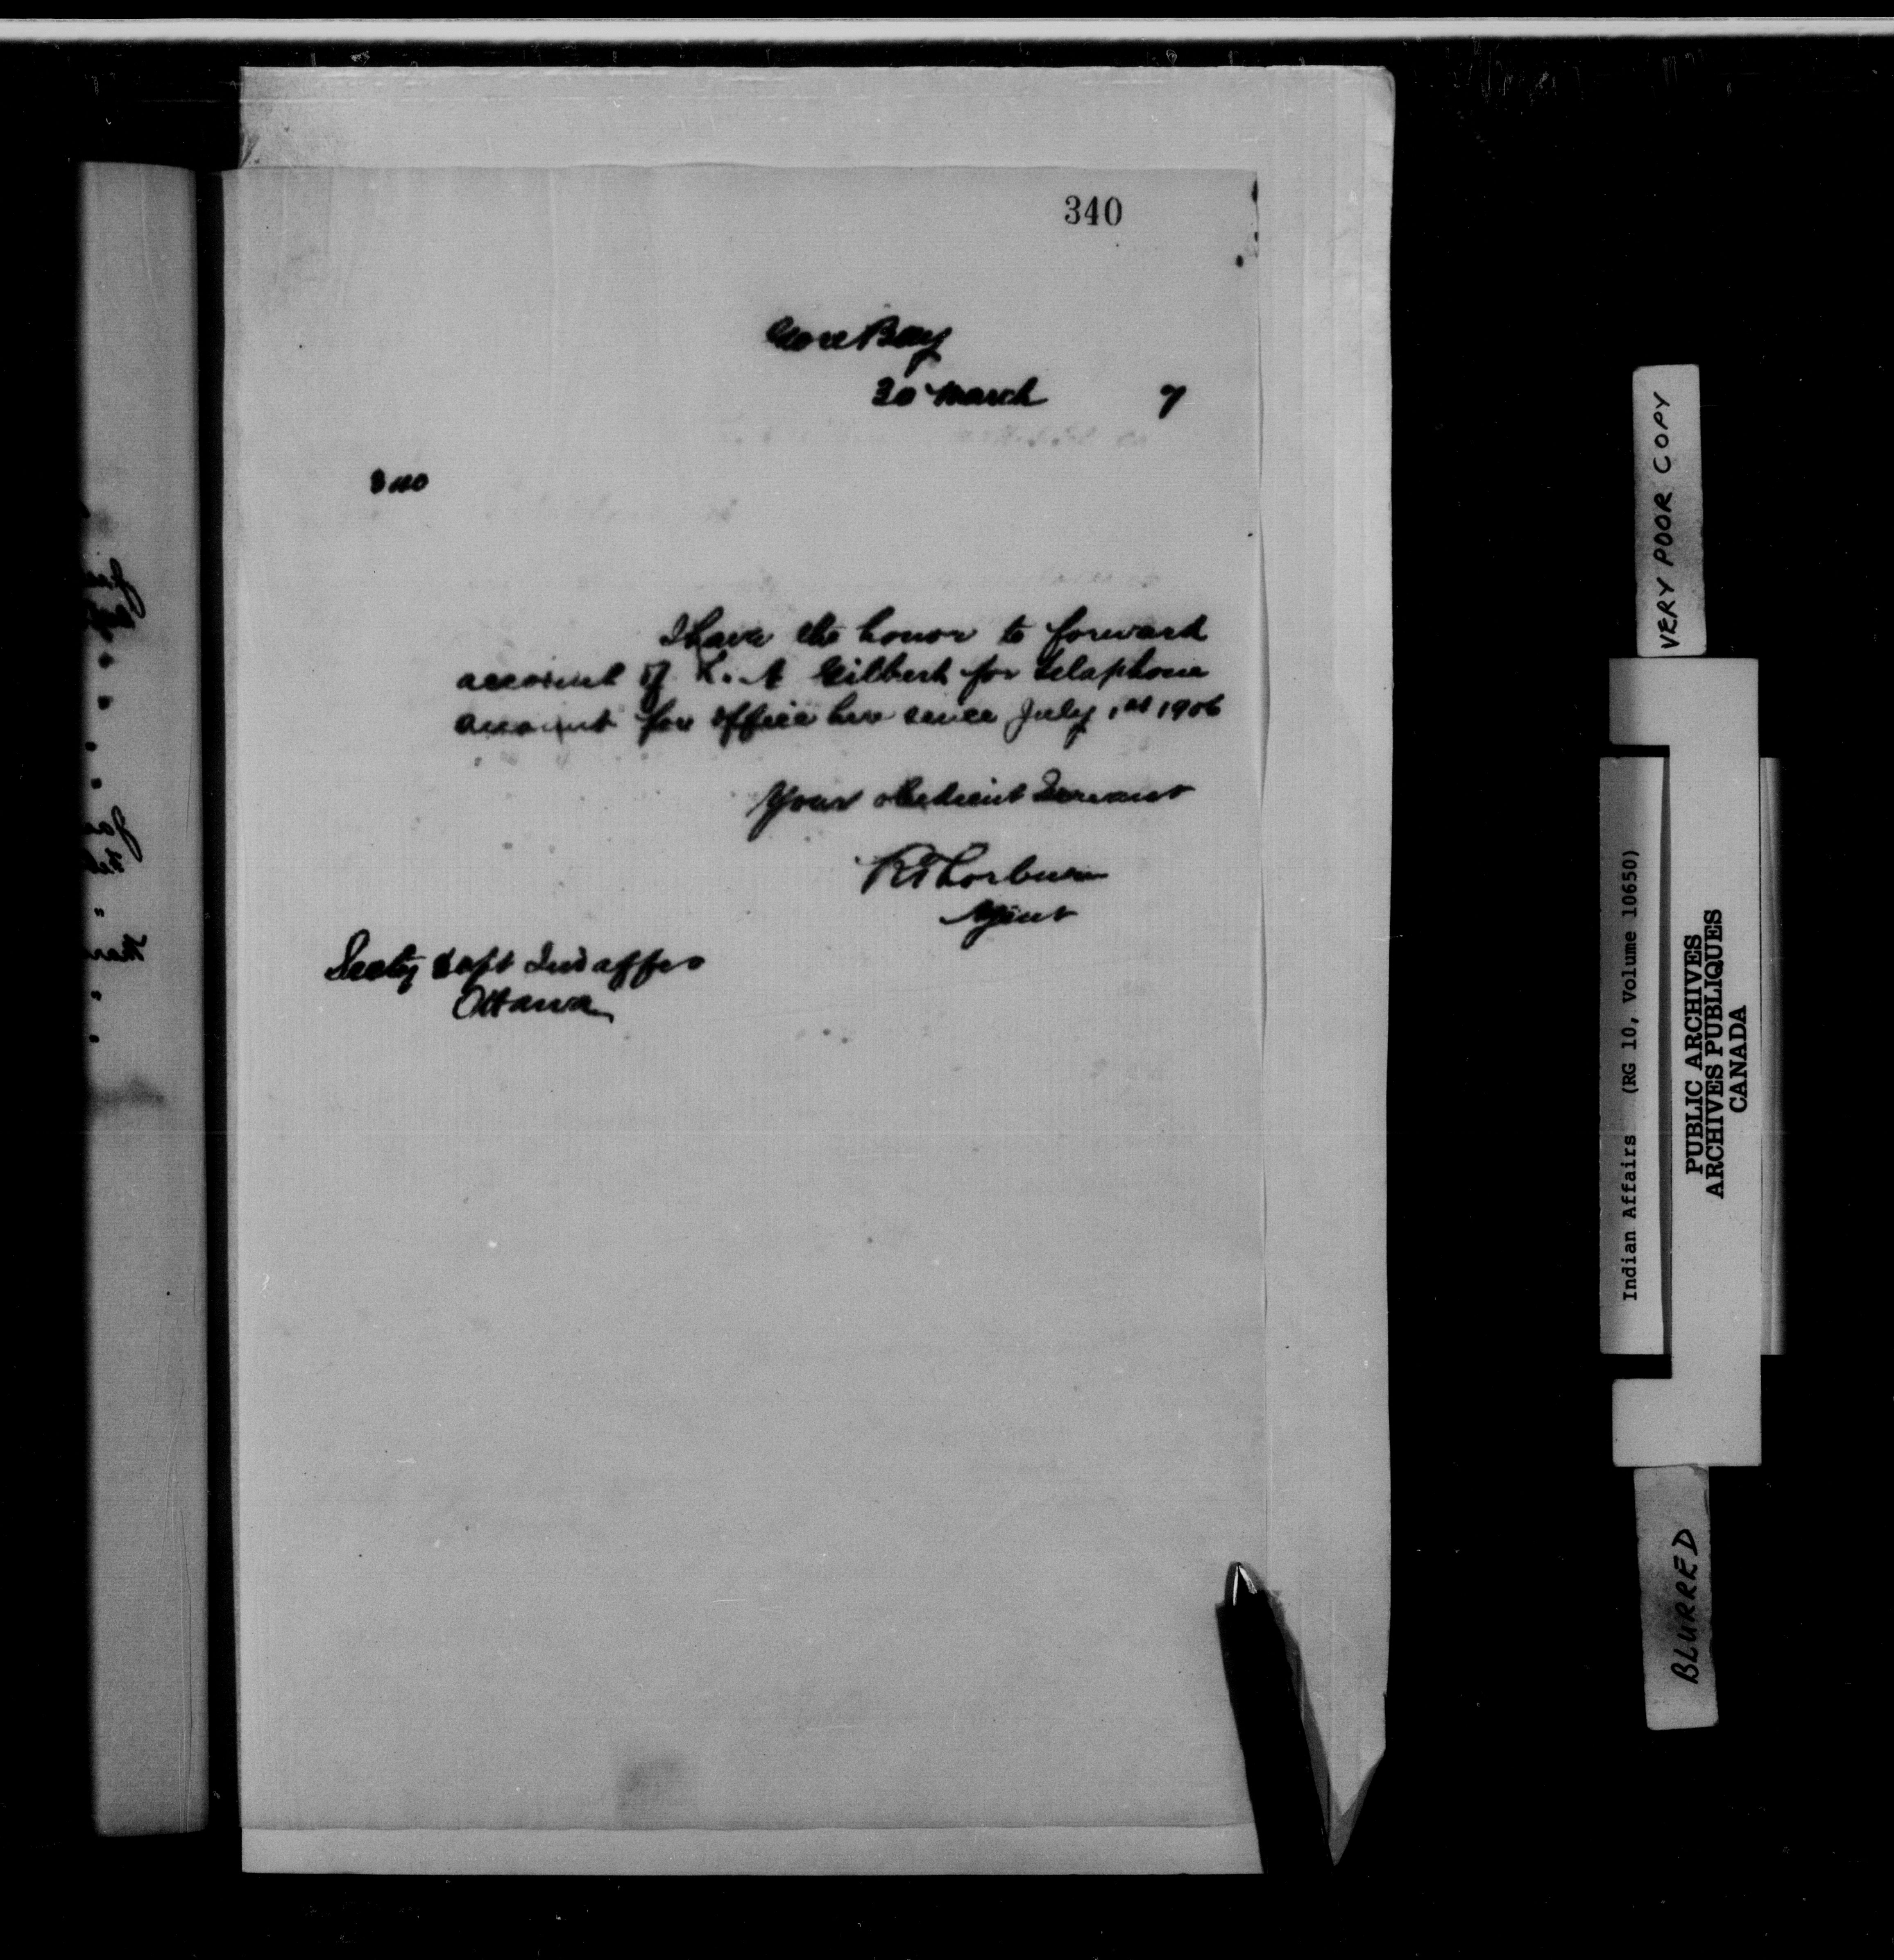 340
Gore Bay
30 March 7
340
I have the honor to forward
account of A Gilbert for telephone
account for office here since July 1st 1906
Your obedient Servant
R Thorburn
Agent
Secty Dept Ind affrs
Ottawa
VERY POOR COPY
Indian Affairs (RG 10, Volume 10650)
PUBLIC ARCHIVES
ARCHIVES PUBLIQUES
CANADA
BLURRED